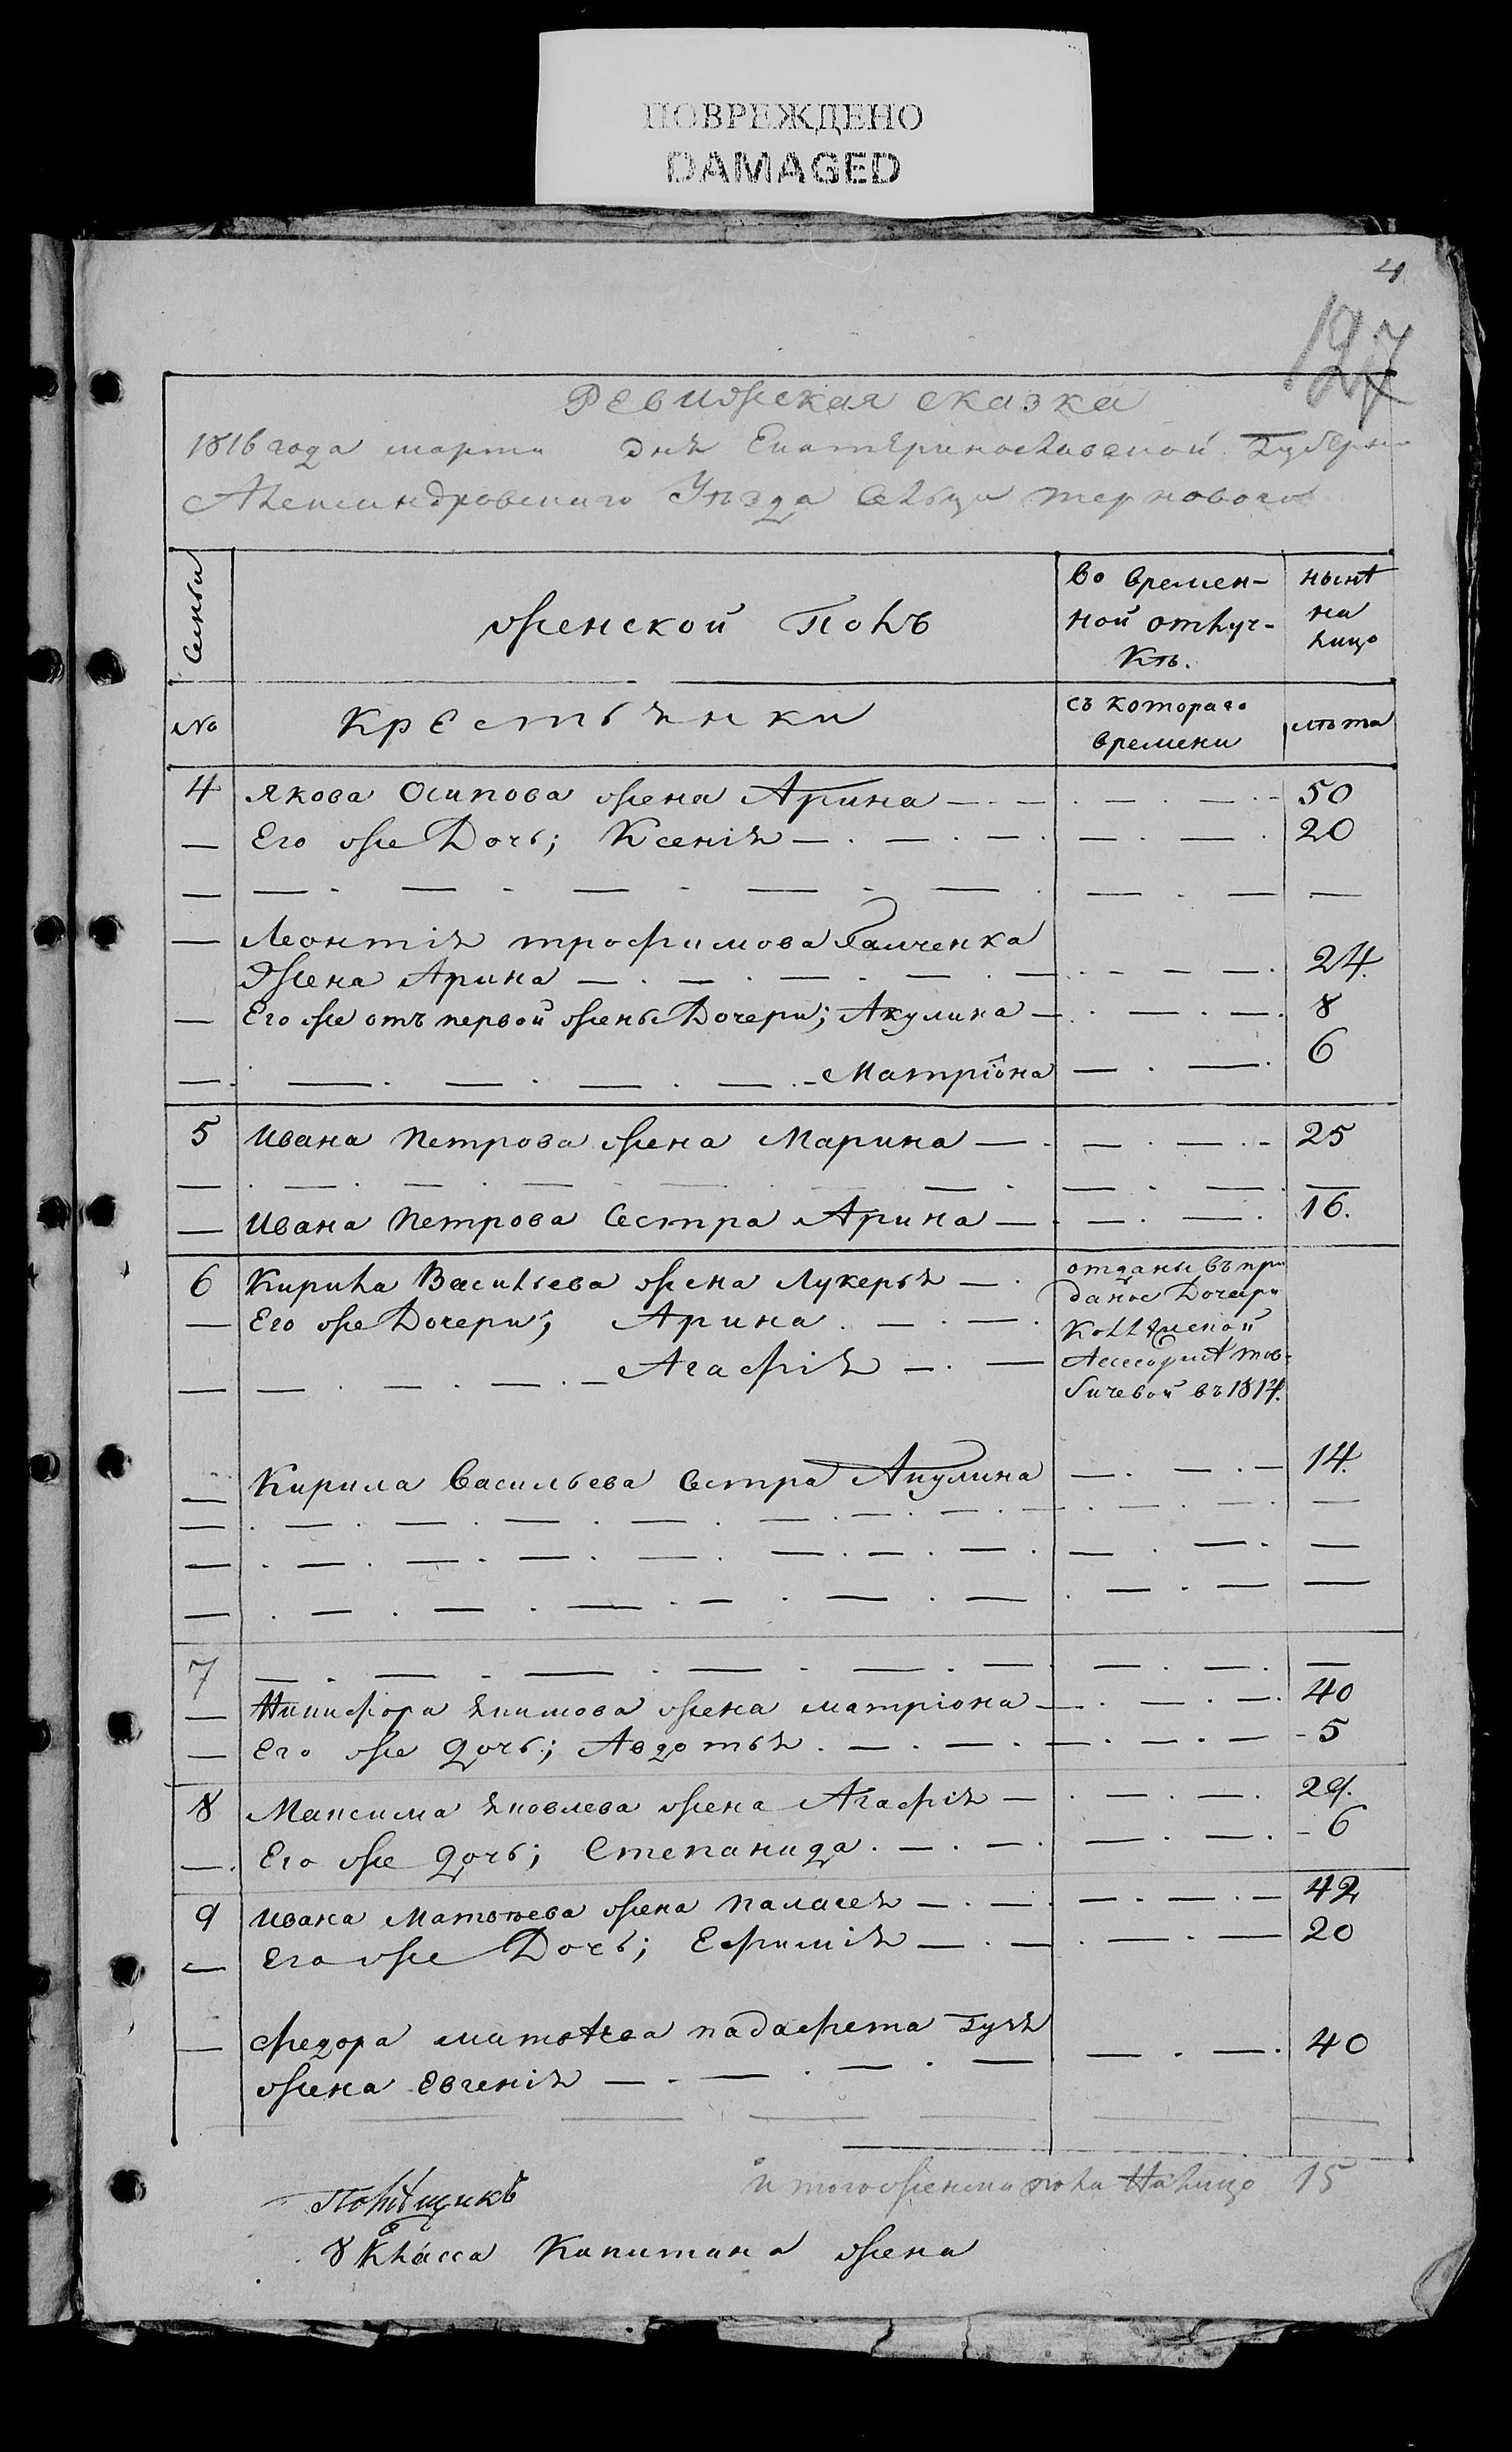 ПОВРЕЖДЕНО
DAMAGED
4
127
Ревижская сказка
1816 года марта дня Екатеринославской Губерни
Александровскаго Уѣзда Сельца терноваго
Семьи
женской Полъ
во времен-
ной отлуч-
кѣ.
нынѣ
на
лицо
№
крестьянки
съ котораго
времени
лѣта
4 якова Осипова жена Арина 50
Его же Дочь; Ксенія 20
Леонтія трофимова
Жена Арина 24.
Его же отъ первой жены Дочери; Акулина 8
Матріона 6
5 Ивана Петрова жена Марина 25
Ивана Петрова Сестра Арина 16.
6 Кирила Васильева жена Лукерья
Его же Дочери; Арина
Агафія
отданы въ при
даное Дочери
Коллежской
Асесоршѣ
въ 1814.
Кирила Васильева Сестра Акулина 14.
7
Никифора якимова жена матріона 40
Его же дочь; Авдотья 5
8 Максима яковлева жена Агафія 29.
Его же дочь; Степанида 6
9 Ивана Матвѣева жена Паласея 42
Его же Дочь; Ефимія 20
федора матвѣева
жена Евгенія 40
итого женска пола На лицо 15
Помѣщикъ
8 Класса Капитана жена